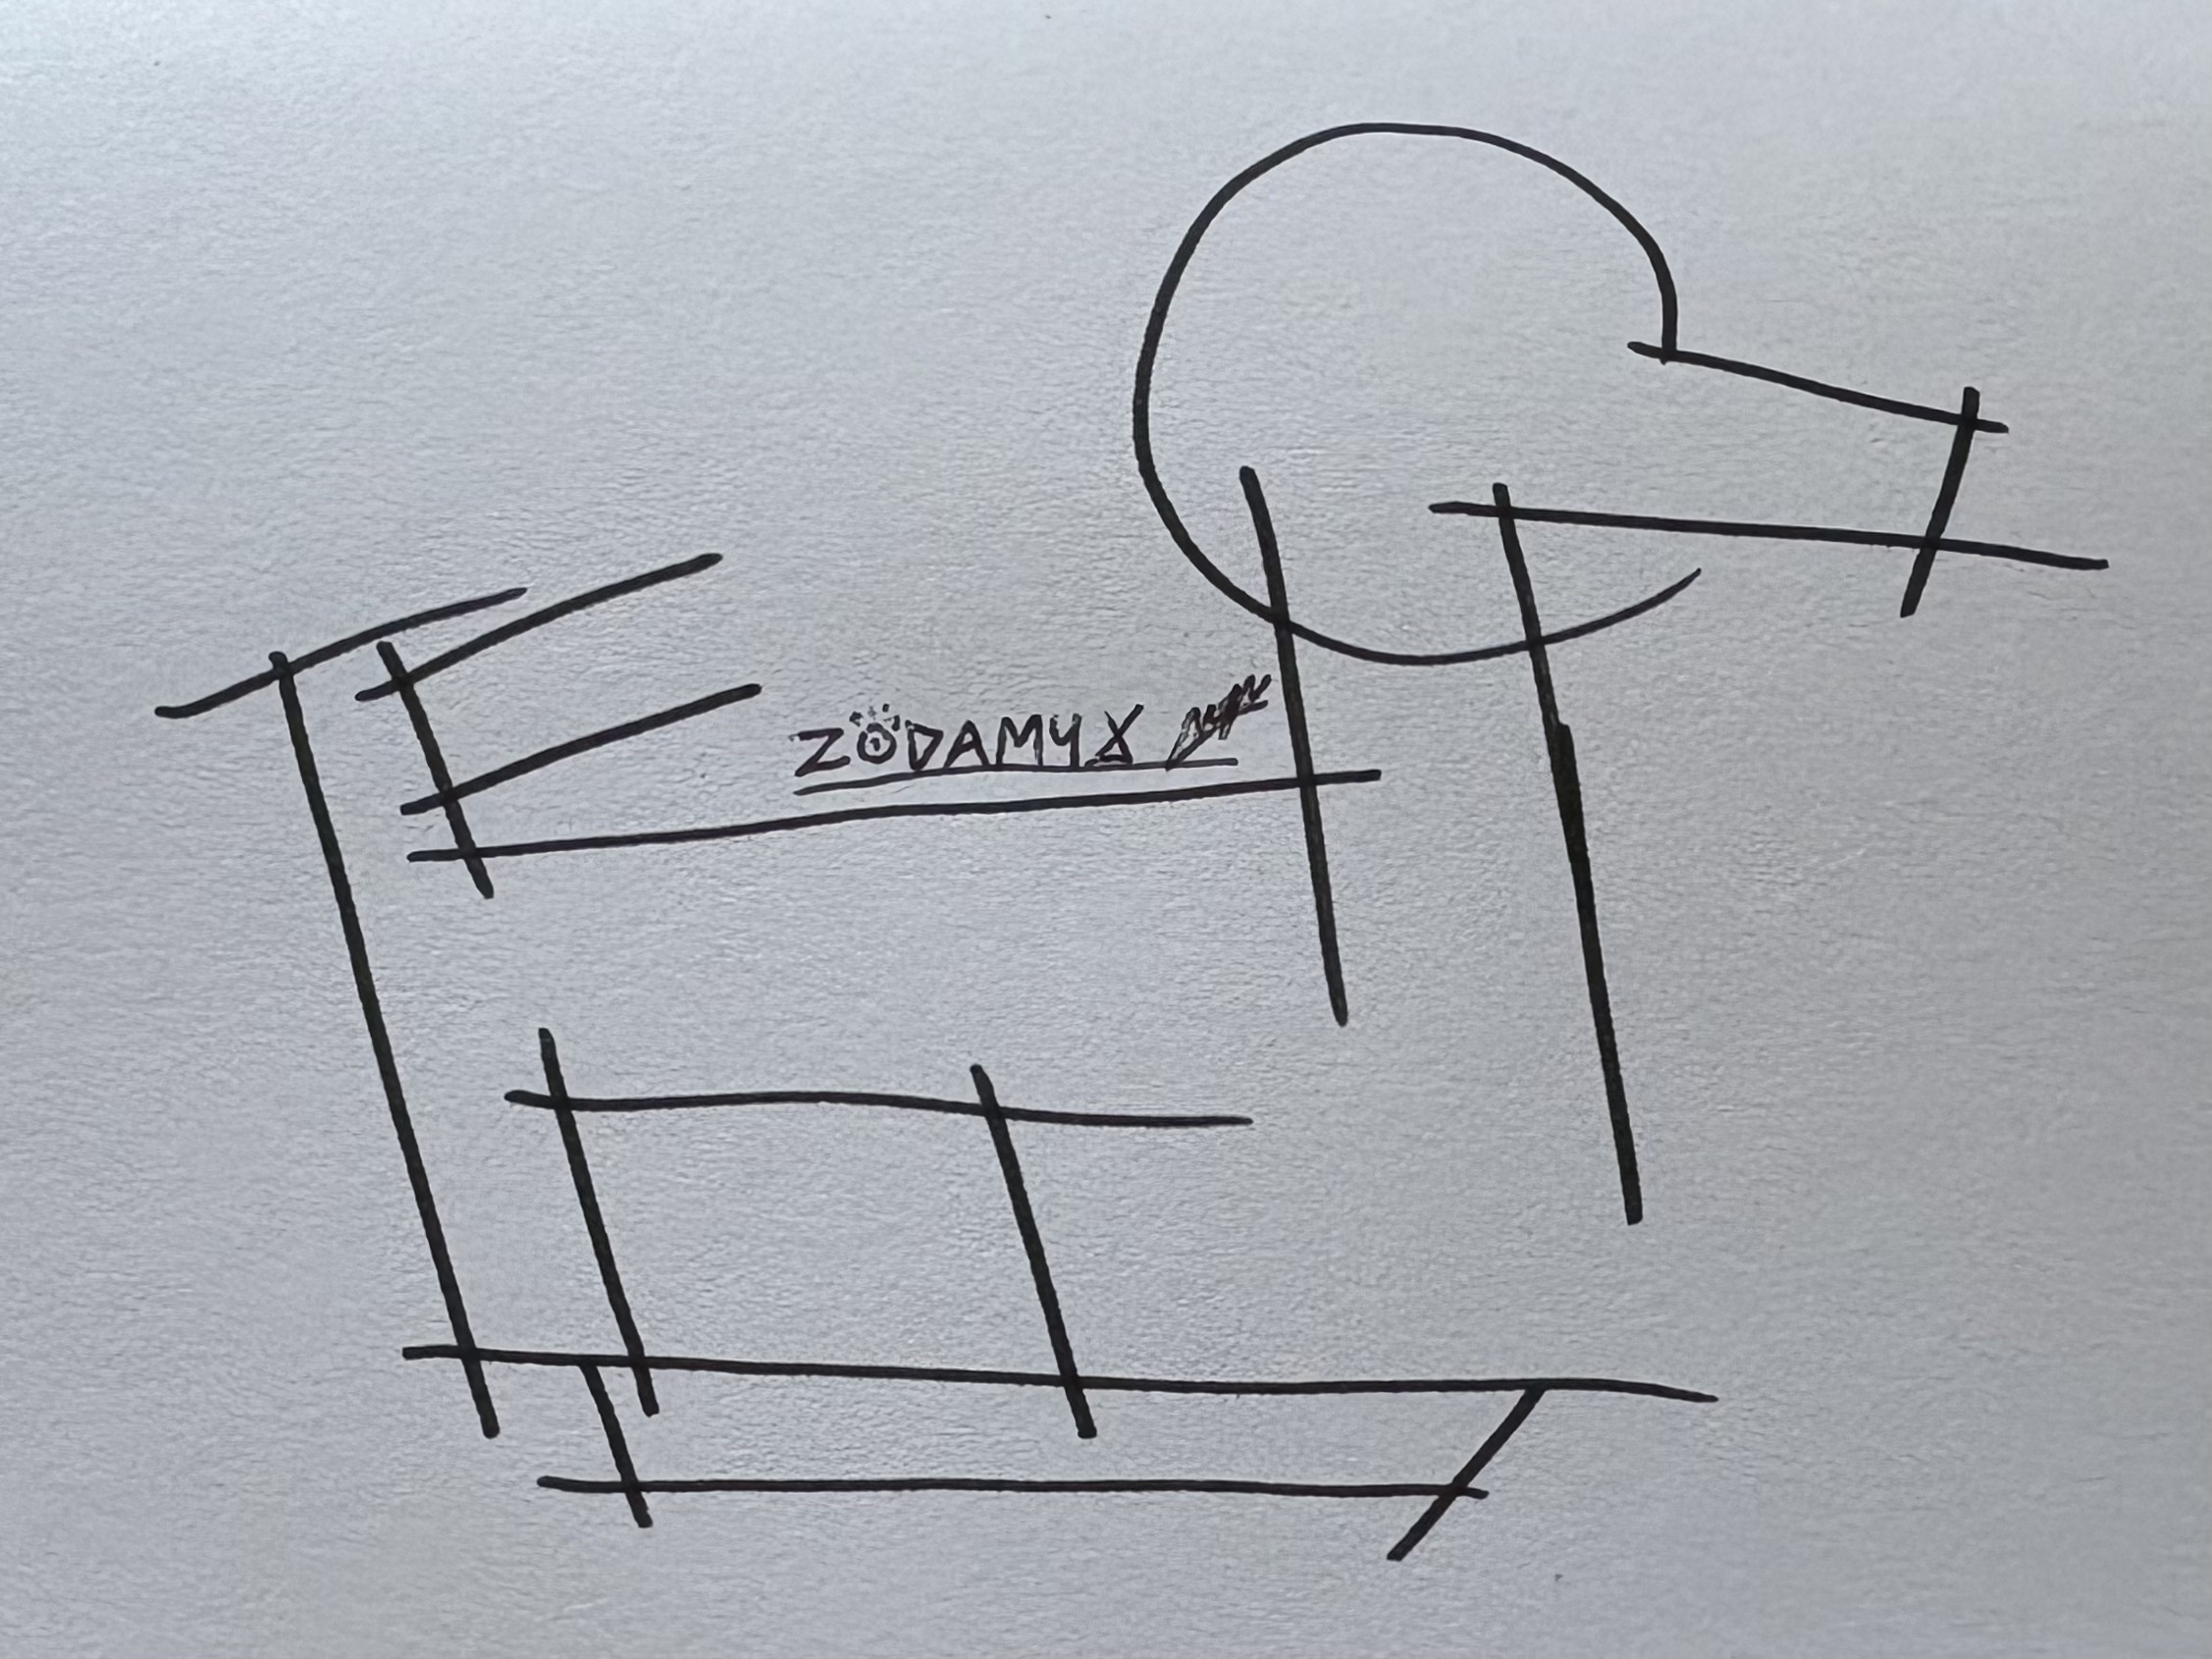 ZÖDAMYX